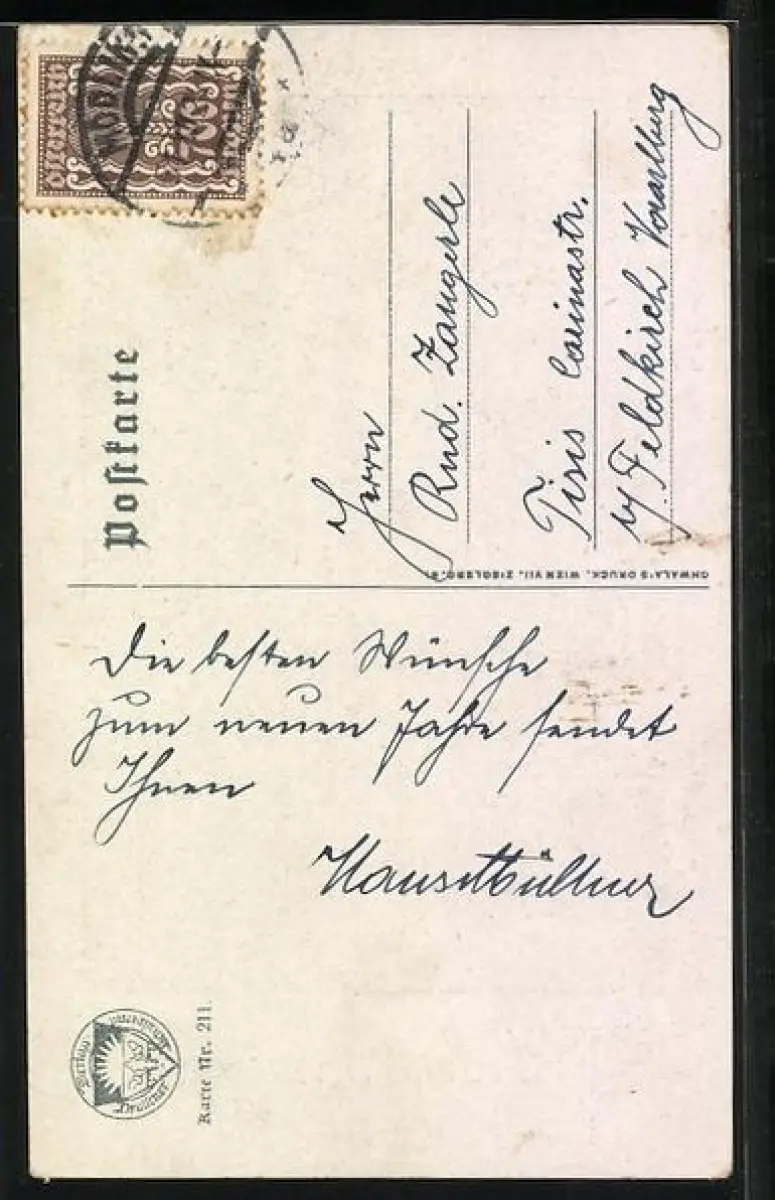 Österreich
700
Kronen
MÖDLING
Postkarte
Herrn
Rud. Zangerle
Tisis Carinastr.
b/ Feldkirch Vorarlberg
CHWALA'S DRUCK, WIEN VII, ZIEGLERG.
Die besten Wünsche
zum neuen Jahre sendet
Ihnen
Karte Nr. 211.